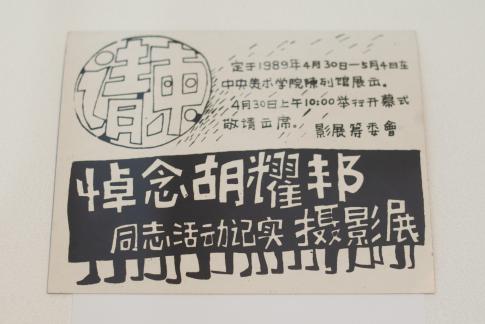 请柬
定于1989年4月30日—5月4日在
中央美术学院陈列馆展出。
4月30日上午10:00举行开幕式
敬请出席。 影展筹委會
悼念胡耀邦
同志活动记实 摄影展